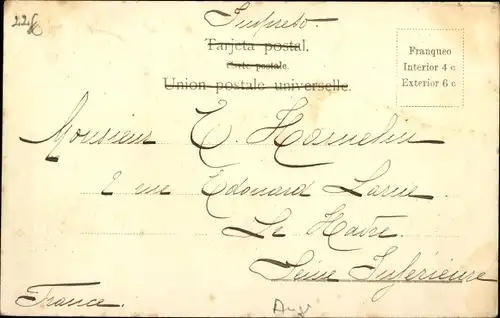 Impreso.
Tarjeta postal.
Carte postale.
Union postale universelle.
Franqueo
Interior 4 c
Exterior 6 c
Monsieur E. Hamelin
2 rue Edouard Larue
Le Havre
Seine Inférieure
France.